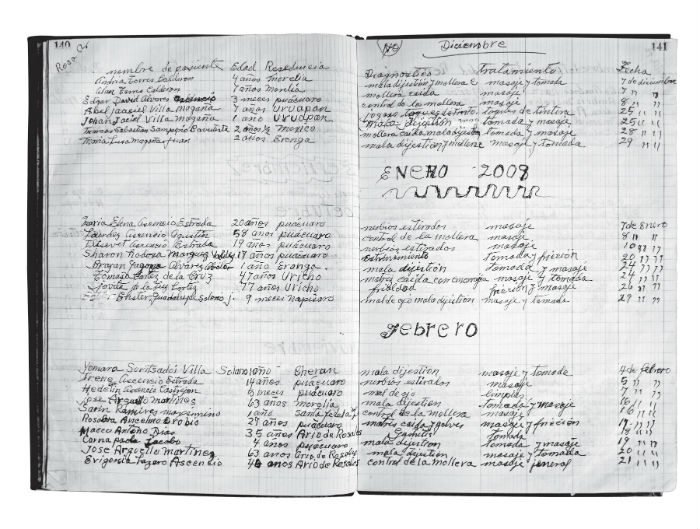 140
Rosa
nombre de pasiente Edad Resedencia
Andrea Torres Calderon 4 años Morelia
Torres Calderon 7 años Morelia
Edgar David Alvares Ascencio 3 meces puácuaro
Abel Villa Mogaña 7 años Uruapan
Johan Jaciel Villa Mogaña 1 año Uruapan
2 años Mexico
Maria Luz Mogaña 2 años Eronga
Maria Elena Ascencio Estrada 20 años puácuaro
Lourdes Ascencio Agustin 58 años puácuaro
Ascencio Estrada 19 años puácuaro
Sharon Rodosa Marquez Valdez 17 años puácuaro
Brayan Alvarez 1 año Eronga
Tomasa Cortez de la Cruz 47 años Uricho
Jovita de la Luz Cortez 77 años Uricho
Guadalupe Solorio J. 9 meces Napisaro
Yomara Soritsadai Villa Solano 1 año Cheran
Irene Ascencio Estrada 14 años puácuaro
Hedetin Ascencio Castrejon 6 meces puácuaro
Jose Arguello Martines 63 años Morelia
Sarin Ramires 1 año Santa fe
Rosalva Anselmo Orobio 29 años puácuaro
Marco Antonio Dias 35 años Ario de Rosales
Corna pada Jacobo 7 años puácuaro
Jose Arguello Martinez 63 años Ario de Rosales
Evigenia Lazaro Ascencio 40 años Ario de Rosales
Diciembre
141
Diagnostico Tratamiento Fecha
mala dijestion y mollera masaje y tomada 7 de diciembre
mollera caida masaje 7 " "
control de la mollera masaje 8 " "
25 " "
mala dijestion tomada y masaje 25 " "
mollera caida mala dijestion tomada y masaje 28 " "
mala dijestion y mollera masaje y tomada 29 " "
ENERO 2009
nerbios estirados masaje 7 de Enero
control de la mollera masaje 8 " "
nerbios estirados masaje 10 " "
Estrenimiento tomada y fricion 20 " "
mala dijestion tomada y masaje 22 " "
matres caida masaje y tomada 24 " "
frialdad fricion y masaje 26 " "
mal de ojo mala dijestion masaje y tomada 29 " "
febrero
mala dijestion masaje y tomada 4 de febrero
nerbios estirados masaje 5 " "
mal de ojo limpia 7 " "
mala dijestion tomada y masaje 16 " "
control de la mollera masaje 16 " "
matres caida masaje y fricion 17 " "
tomada 18 " "
mala dijestion tomada y masaje 19 " "
mala dijestion masaje y tomada 20 " "
control de la mollera masaje jeneral 21 " "